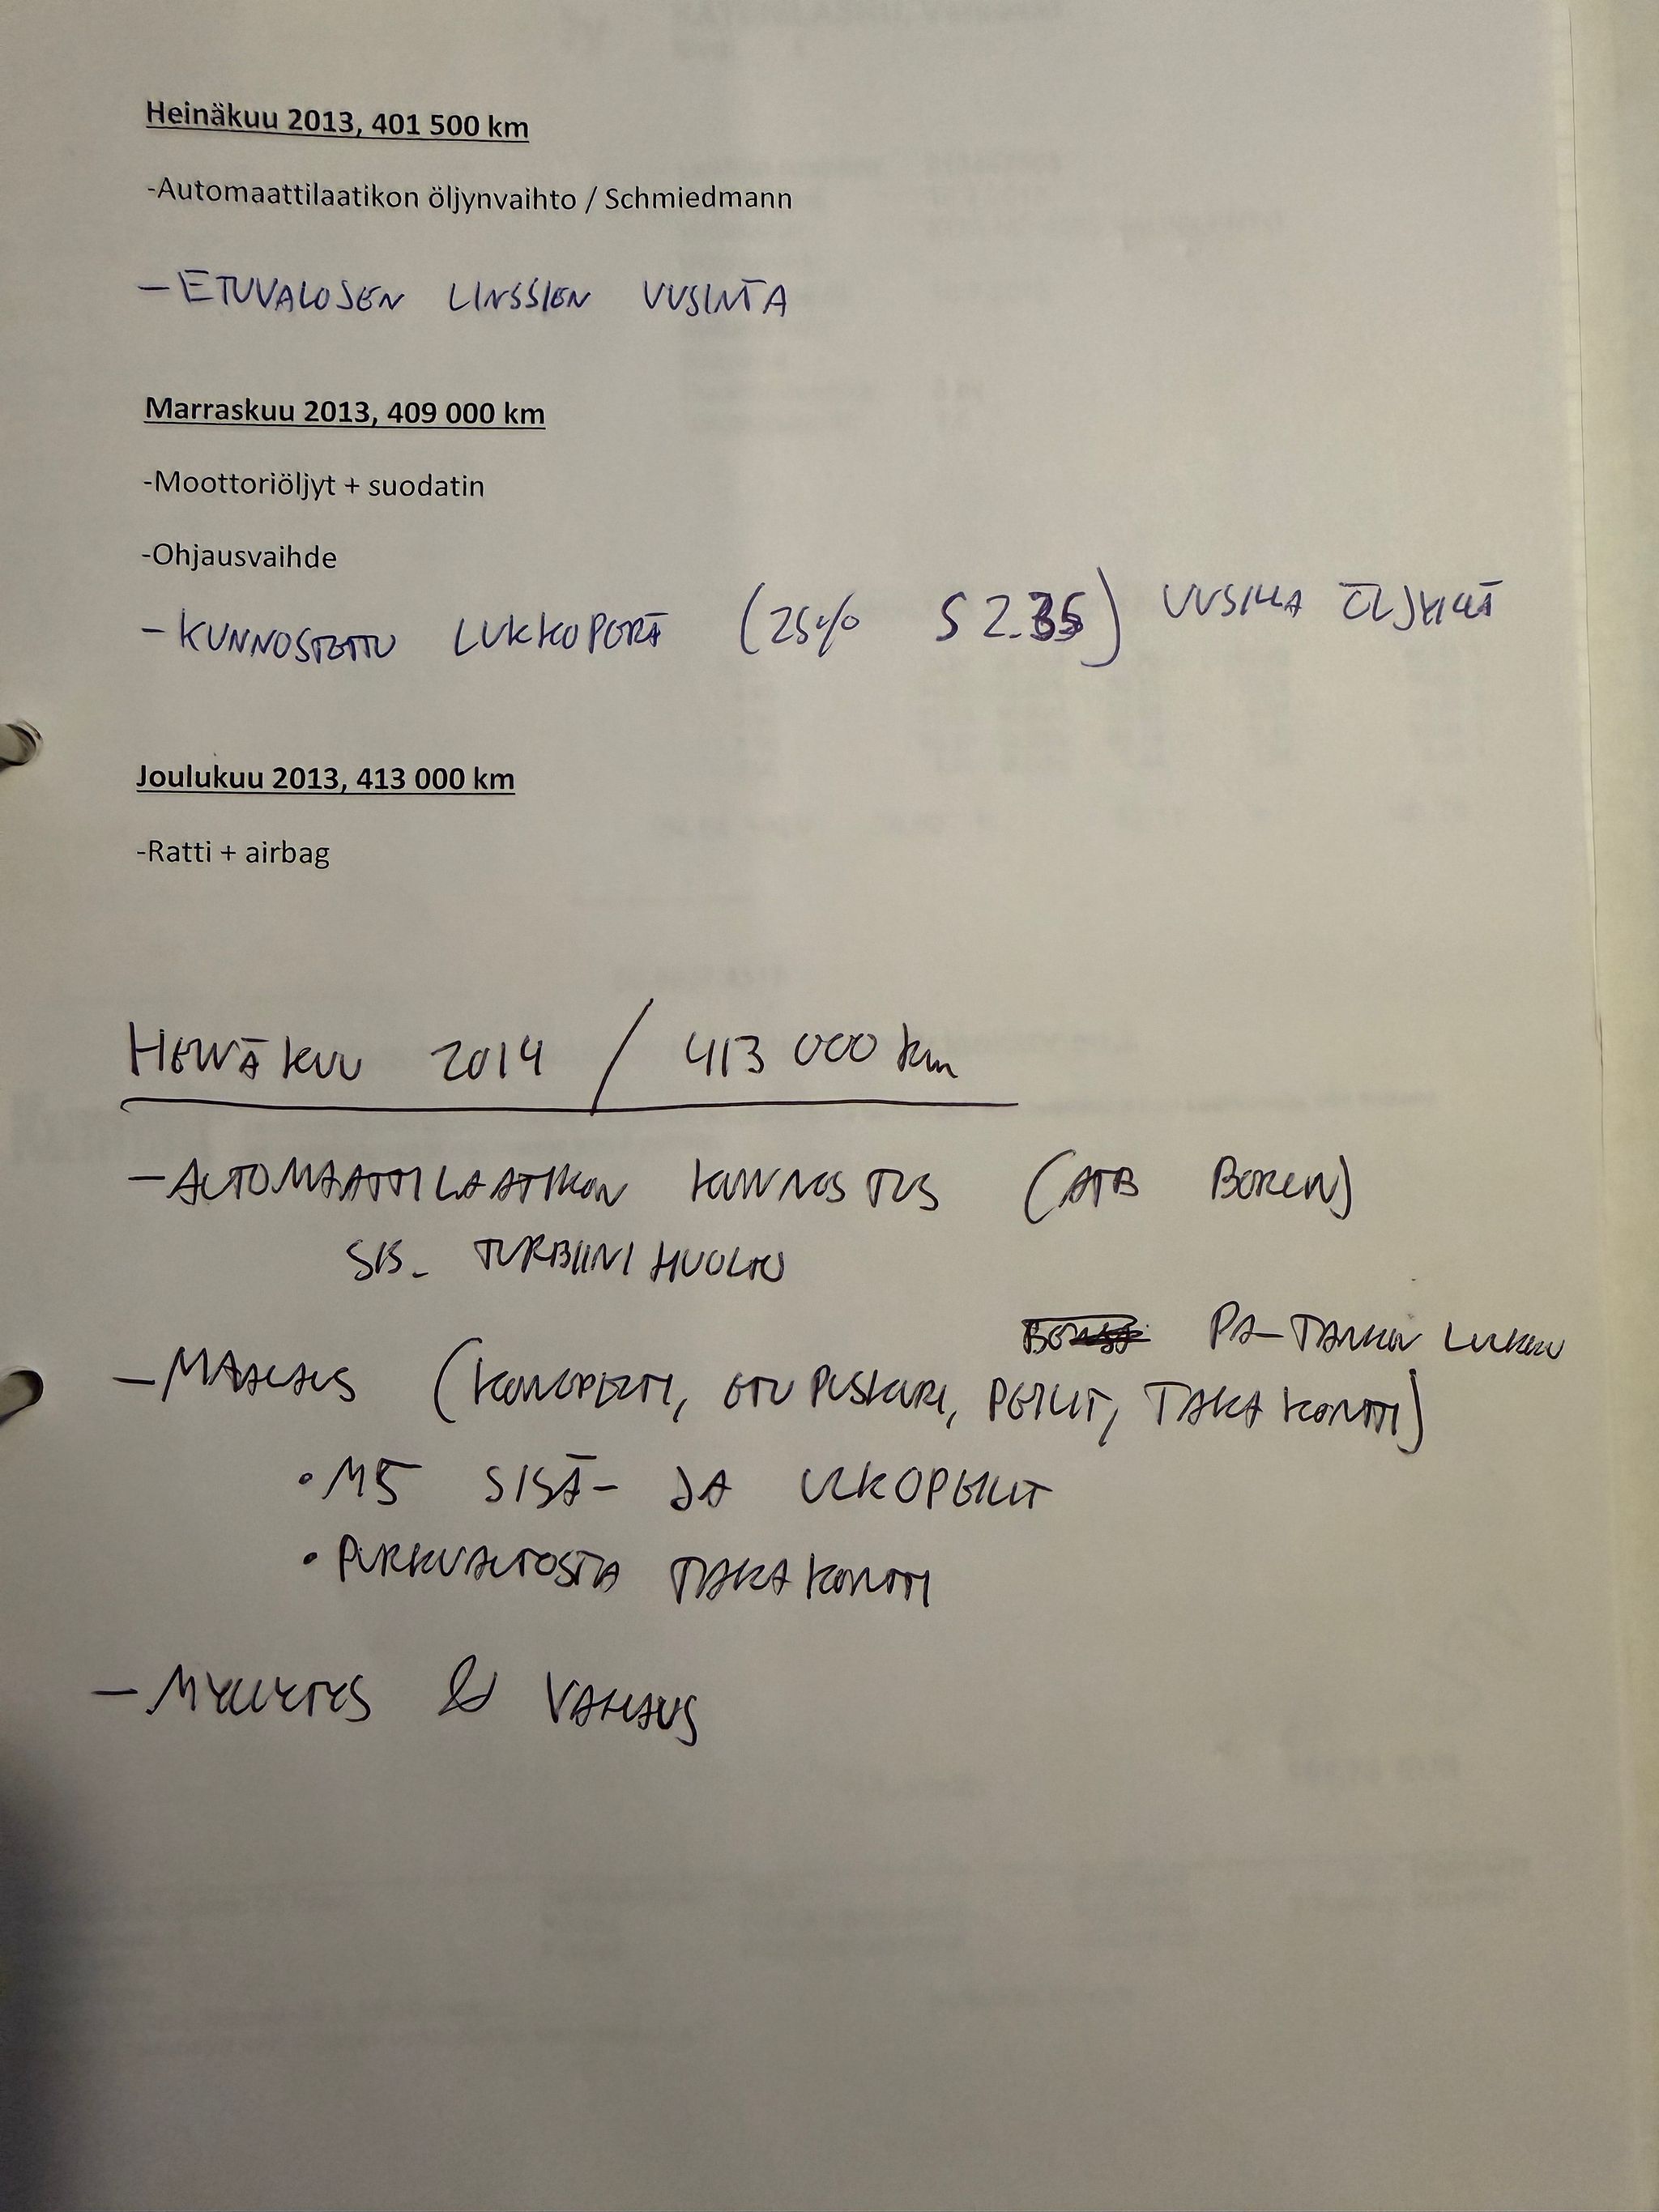 Heinäkuu 2013, 401 500 km
-Automaattilaatikon öljynvaihto / Schmiedmann
- ETUVALOJEN LINSSIEN UUSINTA
Marraskuu 2013, 409 000 km
-Moottoriöljyt + suodatin
-Ohjausvaihde
- KUNNOSTETTU LUKKOPERÄ (25% S 2.35) UUSILLA ÖLJYILLÄ
Joulukuu 2013, 413 000 km
-Ratti + airbag
HEINÄKUU 2014 / 413 000 km
- AUTOMAATTILAATIKON KUNNOSTUS (ATB BOREN)
SIS. TURBIINI HUOLTO
PA-TANKIN LUKKO
- MAALAUS (KONEPELTI, ETUPUSKURI, PEILIT, TAKAKONTTI)
• M5 SISÄ- JA ULKOPEILIT
• PURKUAUTOSTA TAKAKONTTI
- MYLLYTYS & VAHAUS